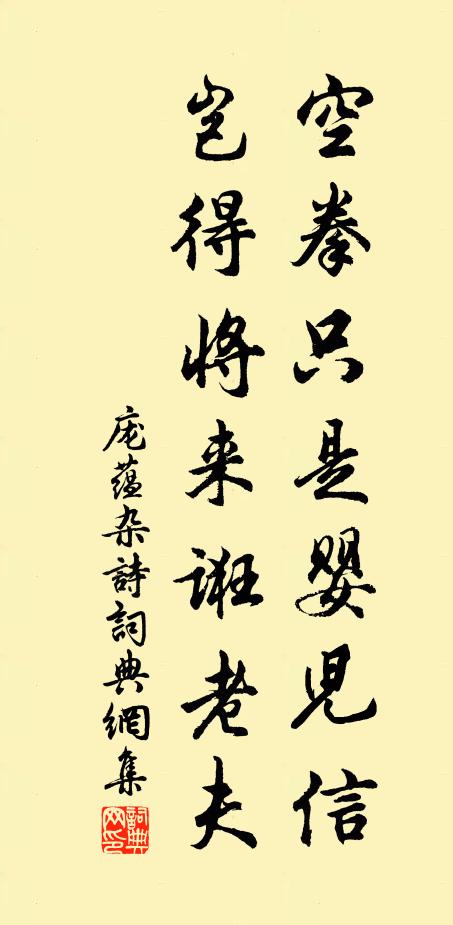 空拳只是婴儿信
岂得将来诳老夫
庞蕴杂詩詞典網集
詞典
网印